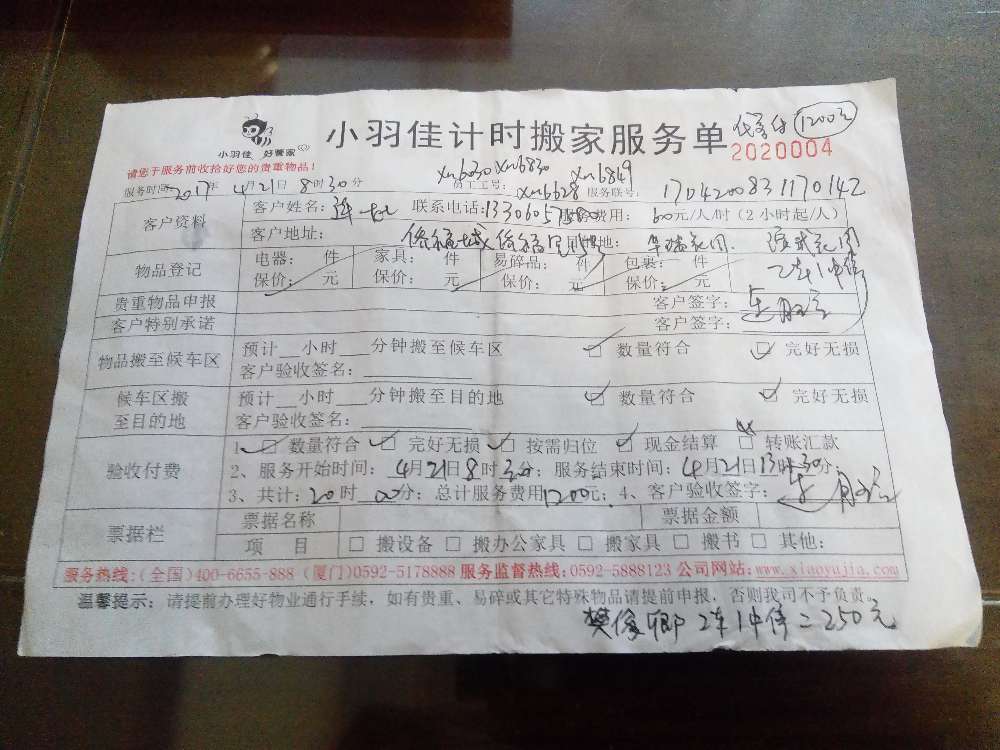 小羽佳 好管家
小羽佳计时搬家服务单 1200元
2020004
请您于服务前收拾好您的贵重物品！
服务时间：2017年4月21日8时30分 员工工号：xm6030 xm6830 xm6628 xm6849 服务联号：1704200831170142
客户资料 客户姓名：连 联系电话：1330605 服务费用：600元/人/时（2小时起/人）
客户地址：
物品登记 电器： 件 家具： 件 易碎品： 件 包裹： 件 2车1中停
保价： 元 保价： 元 保价： 元 保价： 元
贵重物品申报 客户签字：
客户特别承诺 客户签字：
物品搬至候车区 预计__小时___分钟搬至候车区 ☑ 数量符合 ☑ 完好无损
客户验收签名：
候车区搬至目的地 预计__小时___分钟搬至目的地 ☑ 数量符合 ☑ 完好无损
客户验收签名：
验收付费 1、☑ 数量符合 ☑ 完好无损 ☑ 按需归位 ☑ 现金结算 □ 转账汇款
2、服务开始时间：4月21日8时30分；服务结束时间：4月21日13时30分；
3、共计：20时00分；总计服务费用1200元；4、客户验收签字：
票据栏 票据名称 票据金额
项 目 □ 搬设备 □ 搬办公家具 □ 搬家具 □ 搬书 □ 其他：
服务热线：(全国)400-6655-888 (厦门)0592-5178888 服务监督热线：0592-5888123 公司网站：www.xiaoyujia.com
温馨提示：请提前办理好物业通行手续，如有贵重、易碎或其它特殊物品请提前申报，否则我司不予负责。
樊俊卿 2车1中停=250元